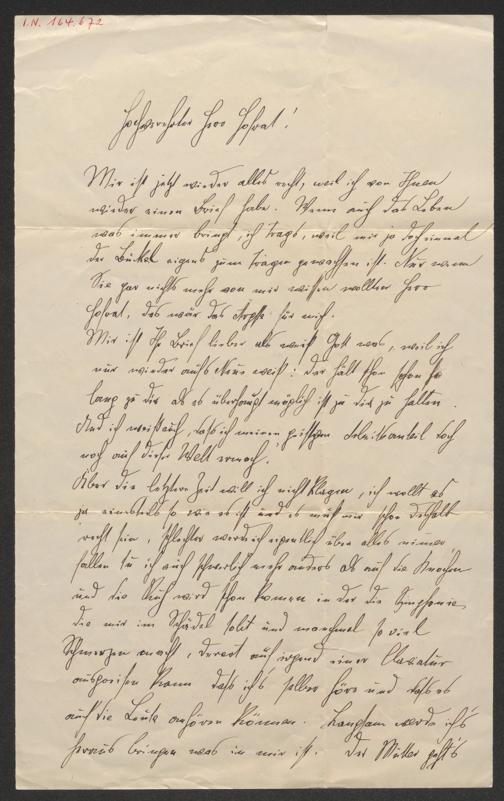 I.N. 164.672
Hochverehrter Herr Hofrat!
Mir ist jetzt wieder alles recht, weil ich von Ihnen
wieder einen Brief habe. Wenn auch das Leben
was immer bringt, ich trags, weil mir ja doch einmal
der Buckel eigens zum Tragen gewachsen ist. Nur wenn
Sie gar nichts mehr von mir wissen wollten Herr
Hofrat, das wär das Ärgste für mich.
Mir ist Ihr Brief lieber als weiß Gott was, weil ich
nur wieder aufs Neue weiß: der hält schon schon so
lang zu dir als es überhaupt möglich ist zu dir zu halten.
Und ich weiß auch, daß ich meinen geistigen Arbeitsanteil doch
noch auf dieser Welt
Über die letztere Zeit will ich nicht klagen, ich wollt es
ja einesteils so wie es ist und es muß mir schon deshalb
recht sein, schlechter werde ich eigentlich über alles nimmer
fallen tu ich auch schwerlich mehr anders als auf die Knochen
und die Ruh wird schon kommen in der die Symphonie
die mir im Schädel tobt und manchmal so viel
Schmerzen macht, derart auf irgend einer Claviatur
ausgreifen kann daß ichs selber höre und daß es
auch die Leute anhören können. Langsam werde ichs
heraus bringen was in mir ist. Der Mutter gehts